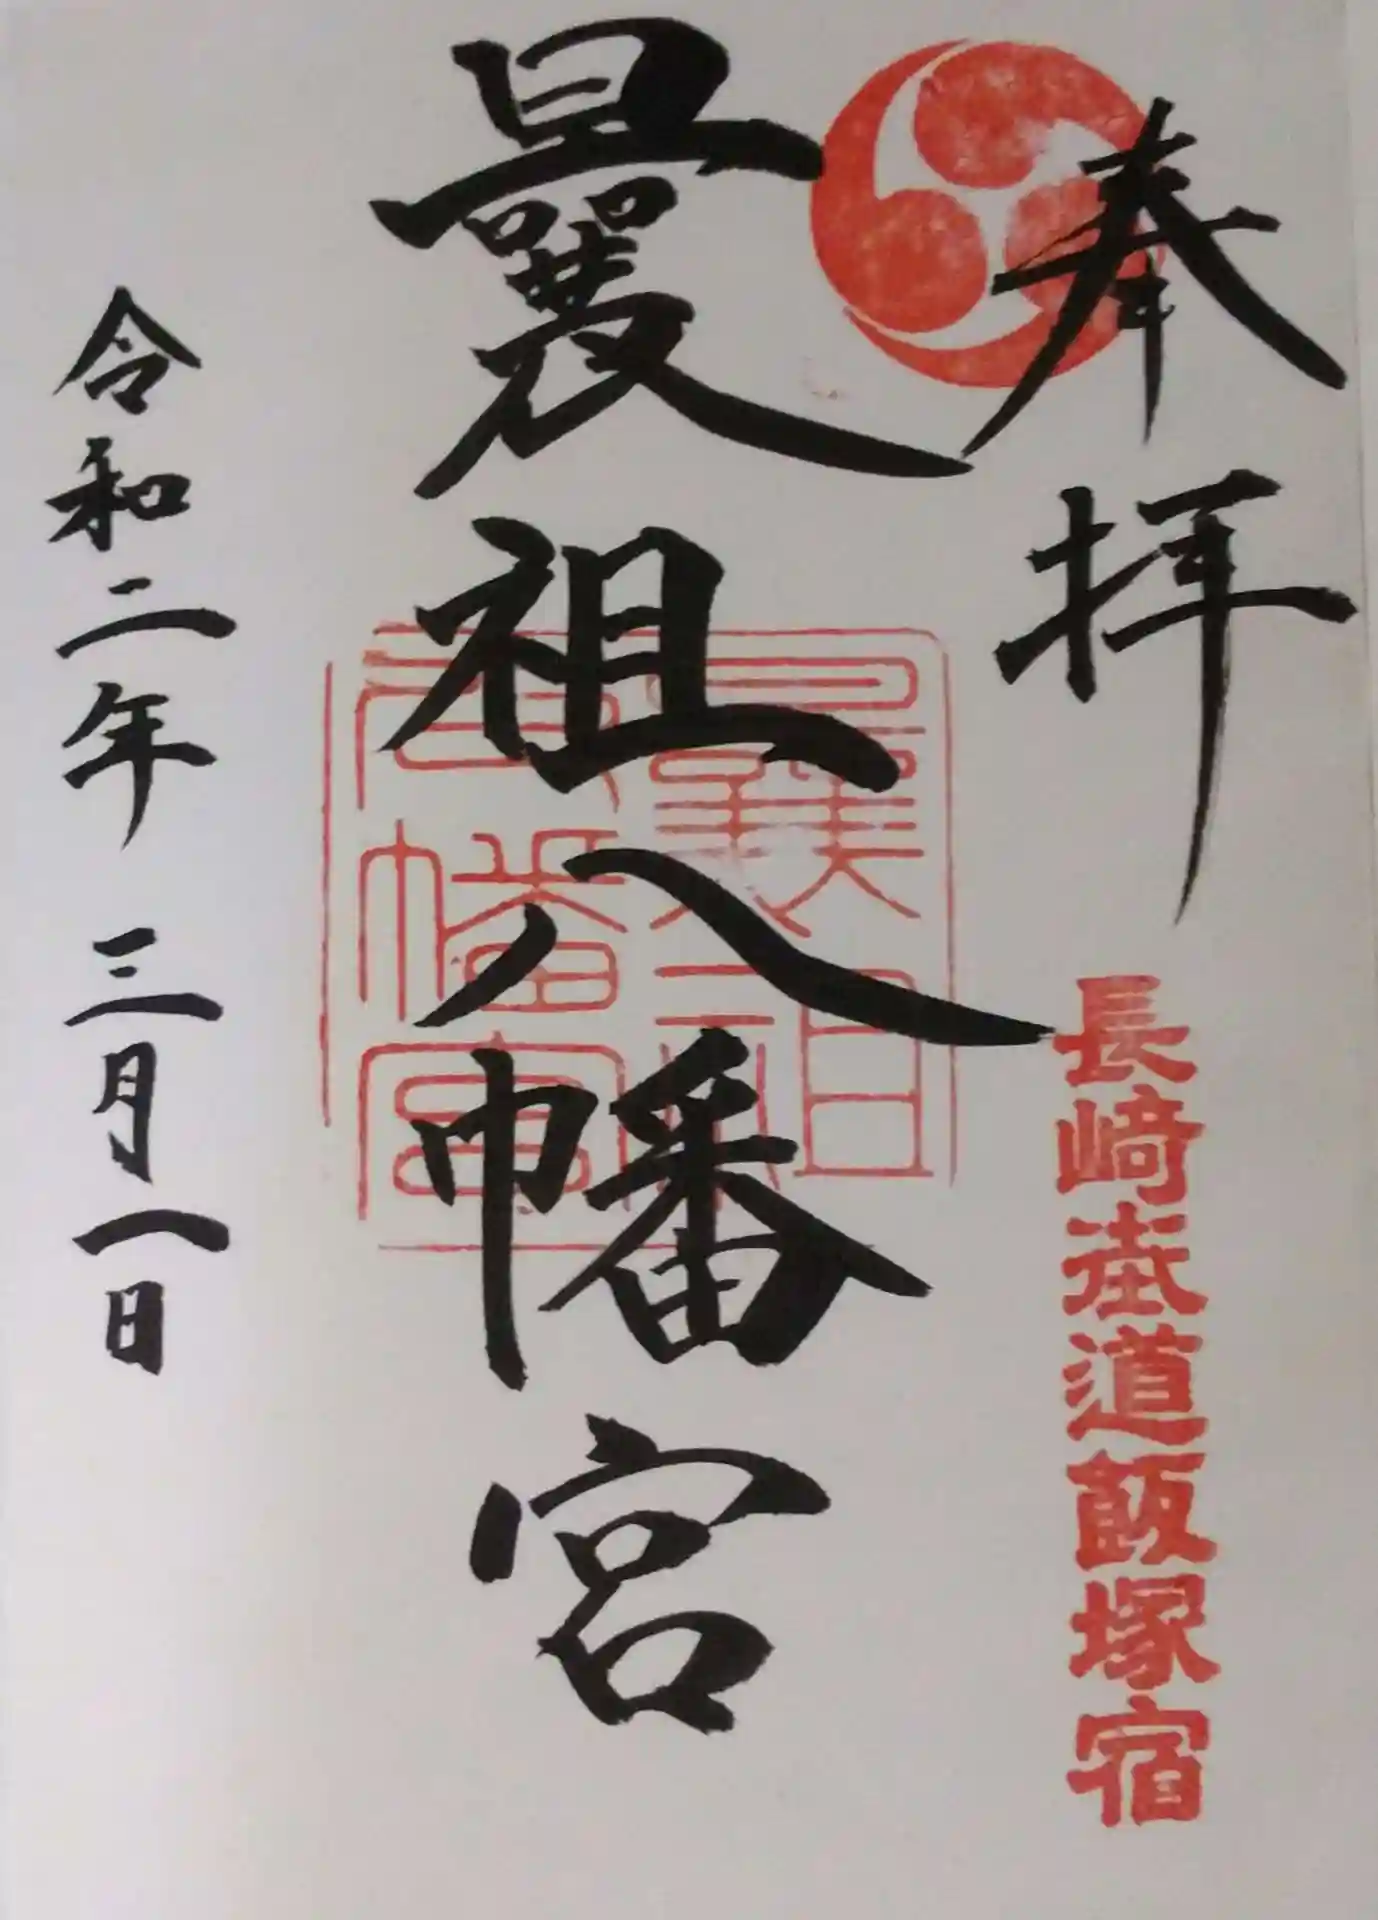 奉拝
長﨑街道飯塚宿
曩祖八幡宮
曩祖八幡宮
令和二年 三月一日